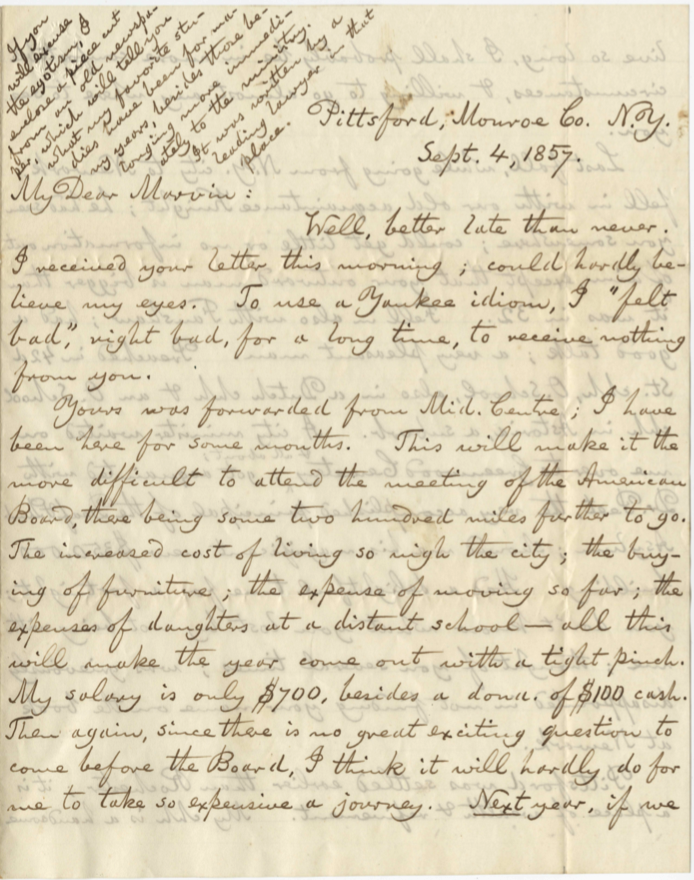 If you
will excuse
the egotism, I
enclose a piece cut
from an old newspa-
per, which will tell you
what my favorite stu-
dies have been for ma-
ny years, besides those be-
longing more immedi-
ately to the ministry.
It was written by a
leading lawyer in that
place.
Pittsford, Monroe Co. N.Y.
Sept. 4, 1857.
My Dear Marvin:
Well, better late than never.
I received your letter this morning; could hardly be-
lieve my eyes. To use a Yankee idiom, I "felt
bad," right bad, for a long time, to receive nothing
from you.
Yours was forwarded from Mid. Centre; I have
been here for some months. This will make it the
more difficult to attend the meeting of the American
Board, there being some two hundred miles farther to go.
The increased cost of living so nigh the city; the buy-
ing of furniture; the expense of moving so far; the
expenses of daughters at a distant school — all this
will make the year come out with a tight pinch.
My salary is only $700, besides a dona. of $100 cash.
Then again, since there is no great exciting question to
come before the Board, I think it will hardly do for
me to take so expensive a journey. Next year, if we